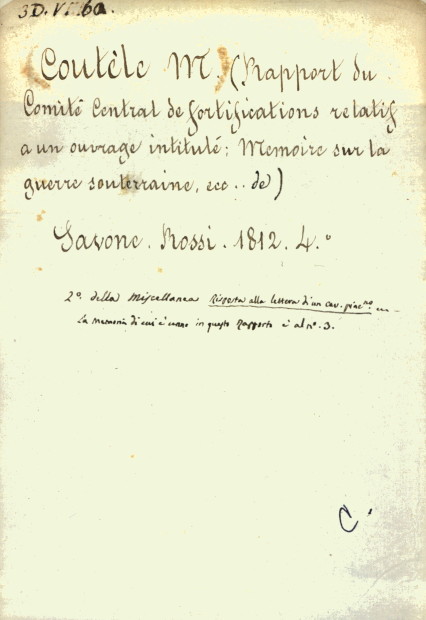 3D. VI. 6a.
Coutèle M. (Rapport du
Comité Central de fortifications relatif
a un ouvrage intitulé: Memoire sur la
guerre souterraine, ecc .. de)
Savone. Rossi. 1812. 4.°
2°. della Miscellanea Risposta alla lettera d'un cav. piac.no
La memoria di cui è cenno in questo Rapporto è al n°. 3.
C.